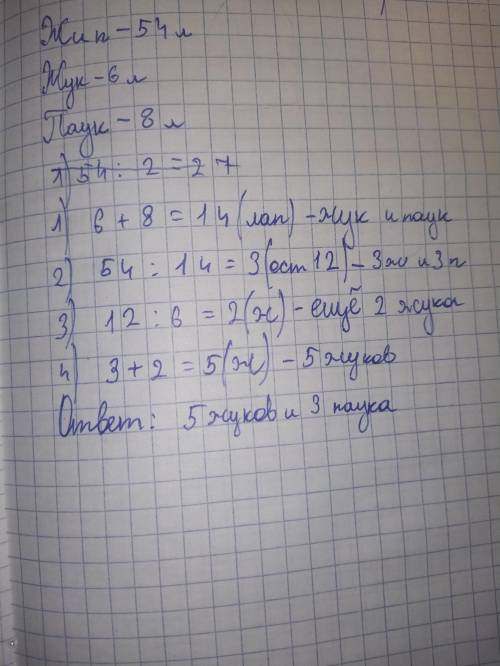 Ж и п – 54 л
Жук – 6 л
Паук – 8 л
1) 54 : 2 = 27
1) 6 + 8 = 14 (лап) – жук и паук
2) 54 : 14 = 3 (ост 12) – 3ж и 3п
3) 12 : 6 = 2 (ж) – ещё 2 жука
4) 3 + 2 = 5 (ж) – 5 жуков
Ответ: 5 жуков и 3 паука